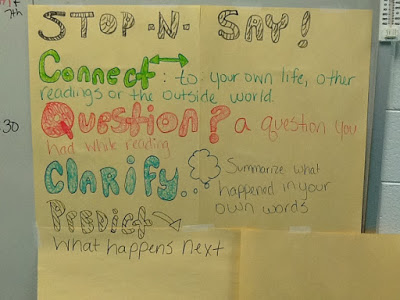 STOP-N-SAY!
Connect: to your own life, other
readings or the outside world.
Question? a question you
had while reading
Clarify.. Summarize what
happened in your
own words
Predict
What happens next
7th
30